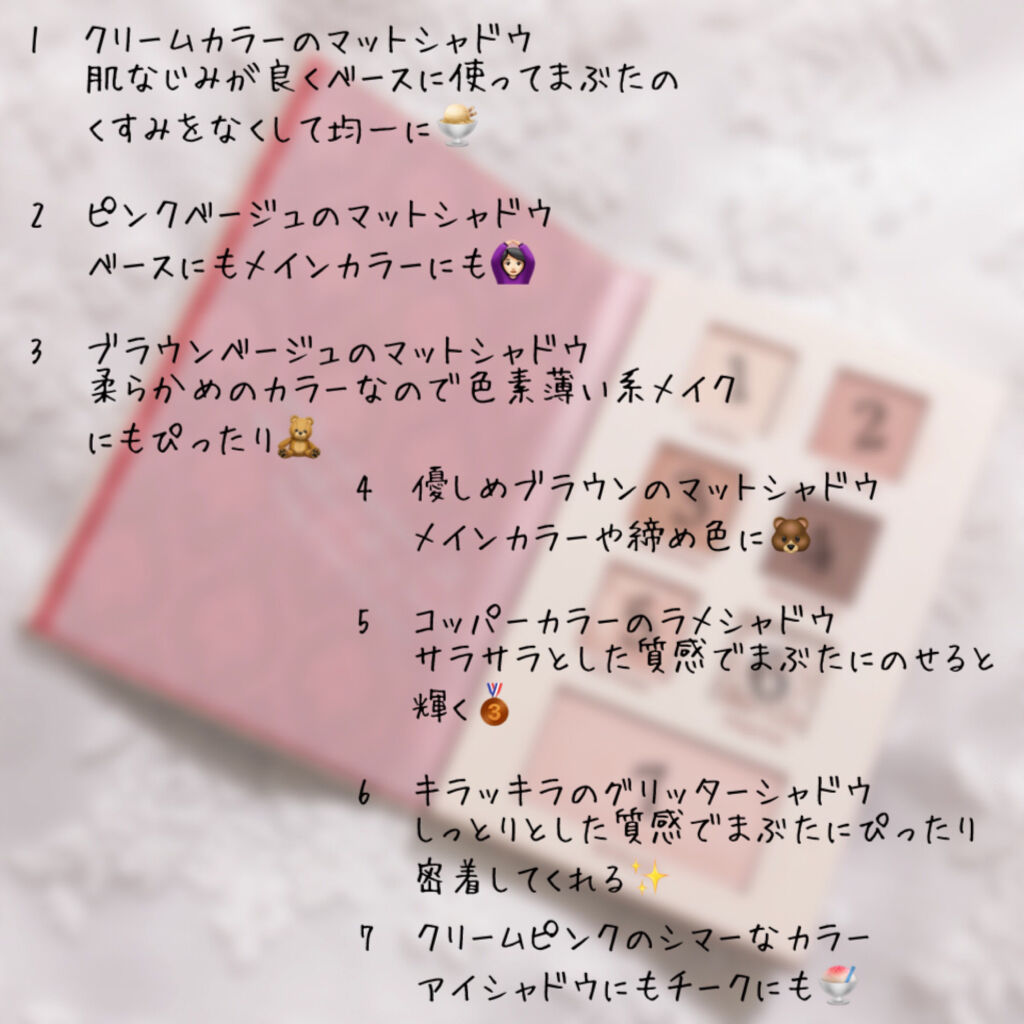 1 クリームカラーのマットシャドウ
肌なじみが良くベースに使ってまぶたの
くすみをなくして均一に🍨
2 ピンクベージュのマットシャドウ
ベースにもメインカラーにも🙆🏻‍♀️
3 ブラウンベージュのマットシャドウ
柔らかめのカラーなので色素薄い系メイク
にもぴったり🧸
4 優しめブラウンのマットシャドウ
メインカラーや締め色に🐻
5 コッパーカラーのラメシャドウ
サラサラとした質感でまぶたにのせると
輝く🥉
6 キラッキラのグリッターシャドウ
しっとりとした質感でまぶたにぴったり
密着してくれる✨
7 クリームピンクのシマーなカラー
アイシャドウにもチークにも🍧
1
2
3
4
6